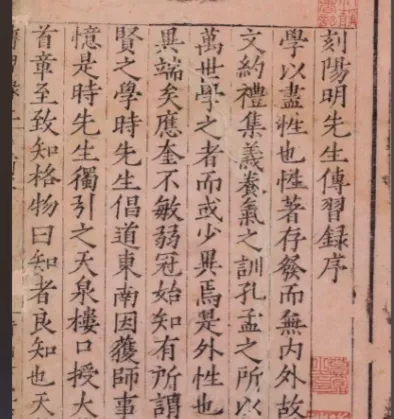 刻陽明先生傳習録序
學以盡性也性著存發而無内外故
文約禮集義養氣之訓孔孟之所以
萬世學之者而或少異焉是外性也
異端矣應奎不敏弱冠始知有所謂
賢之學時先生倡道東南因獲師事
憶是時先生獨引之天泉樓口授大
首章至致知格物曰知者良知也天